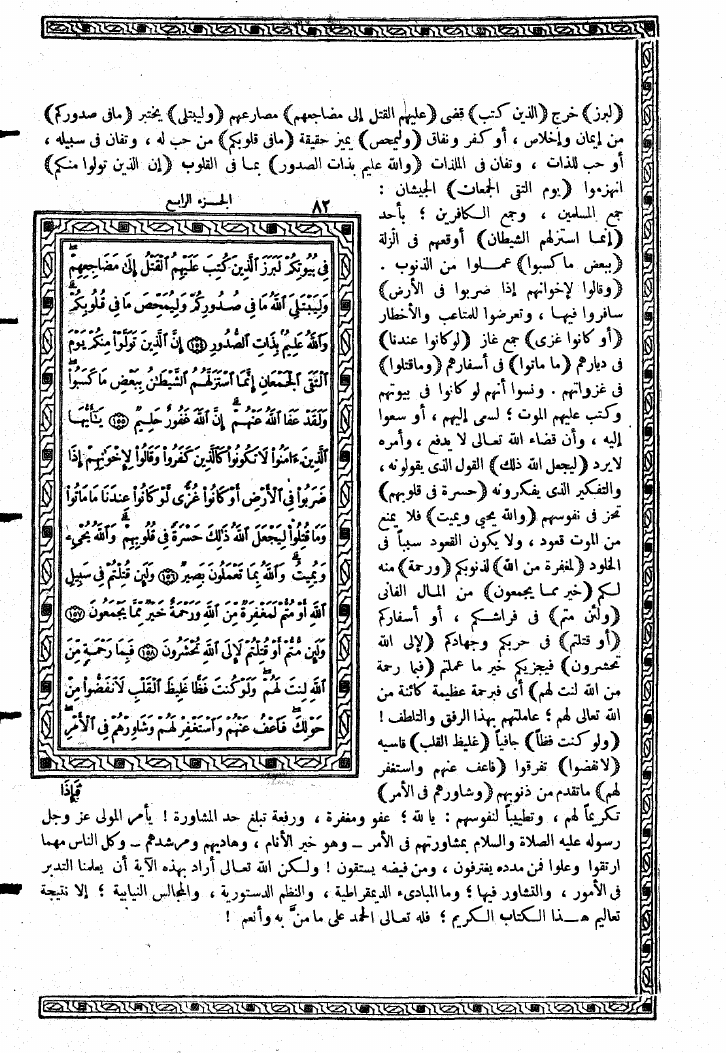 (لبرز) خرج (الذين كتب) قضى (عليهم القتل إلى مضاجعهم) مصارعهم (وليبتلى) يختبر (مافى صدوركم)
من إيمان وإخلاص ، أو كفر ونفاق (وليمحص) يميز حقيقة (مافى قلوبكم) من حب له ، وتفان فى سبيله ،
أو حب للذات ، وتفان فى الملذات (والله عليم بذات الصدور) بما فى القلوب (إن الذين تولوا منكم)
انهزموا (يوم التقى الجمعان) الجيشان :
جمع المسلمين ، وجمع الكافرين ؛ بأحد
(إنما استزلهم الشيطان) أوقعهم فى الزلة
(ببعض ماكسبوا) عملوا من الذنوب .
(وقالوا لإخوانهم إذا ضربوا فى الأرض)
سافروا فيها ، وتعرضوا للمتاعب والأخطار
(أو كانوا غزى) جمع غاز (لوكانوا عندنا)
فى ديارهم (ما ماتوا) فى أسفارهم (وماقتلوا)
فى غزواتهم . ونسوا أنهم لو كانوا فى بيوتهم
وكتب عليهم الموت ؛ لسعى إليهم ، أو سعوا
إليه ، وأن قضاء الله تعالى لا يدفع ، وأمره
لايرد (ليجعل الله ذلك) القول الذى يقولونه ،
والتفكير الذى يفكرونه (حسرة فى قلوبهم)
تحز فى نفوسهم (والله يحيى ويميت) فلا يمنع
من الموت قعود ، ولا يكون القعود سبباً فى
الخلود (لمغفرة من الله) لذنوبكم (ورحمة) منه
لكم (خير مما يجمعون) من المال الفانى
(ولئن متم) فى فراشكم ، أو أسفاركم
(أو قتلتم) فى حربكم وجهادكم (لإلى الله
تحشرون) فيجزيكم خير ما عملتم (فبما رحمة
من الله لنت لهم) أى فبرحمة عظيمة كائنة من
الله تعالى لهم ؛ عاملتهم بهذا الرفق والتلطف !
(ولو كنت فظاً) جافياً (غليظ القلب) قاسيه
(لانفضوا) تفرقوا (فاعف عنهم واستغفر
لهم) ماتقدم من ذنوبهم (وشاورهم فى الأمر)
٨٢
الجزء الرابع
فِى بُيُوتِكُمْ لَبَرَزَ الَّذِينَ كُتِبَ عَلَيْهِمُ الْقَتْلُ إِلَىٰ مَضَاجِعِهِمْ ۖ
وَلِيَبْتَلِىَ اللَّهُ مَا فِى صُدُورِكُمْ وَلِيُمَحِّصَ مَا فِى قُلُوبِكُمْ ۗ
وَاللَّهُ عَلِيمٌ بِذَاتِ الصُّدُورِ ١٥٤ إِنَّ الَّذِينَ تَوَلَّوْا مِنكُمْ يَوْمَ
الْتَقَى الْجَمْعَانِ إِنَّمَا اسْتَزَلَّهُمُ الشَّيْطَٰنُ بِبَعْضِ مَا كَسَبُوا ۖ
وَلَقَدْ عَفَا اللَّهُ عَنْهُمْ ۗ إِنَّ اللَّهَ غَفُورٌ حَلِيمٌ ١٥٥ يَٰٓأَيُّهَا
الَّذِينَ ءَامَنُوا لَا تَكُونُوا كَالَّذِينَ كَفَرُوا وَقَالُوا لِإِخْوَٰنِهِمْ إِذَا
ضَرَبُوا فِى الْأَرْضِ أَوْ كَانُوا غُزًّى لَّوْ كَانُوا عِندَنَا مَا مَاتُوا
وَمَا قُتِلُوا لِيَجْعَلَ اللَّهُ ذَٰلِكَ حَسْرَةً فِى قُلُوبِهِمْ ۗ وَاللَّهُ يُحْىِۦ
وَيُمِيتُ ۗ وَاللَّهُ بِمَا تَعْمَلُونَ بَصِيرٌ ١٥٦ وَلَئِن قُتِلْتُمْ فِى سَبِيلِ
اللَّهِ أَوْ مُتُّمْ لَمَغْفِرَةٌ مِّنَ اللَّهِ وَرَحْمَةٌ خَيْرٌ مِّمَّا يَجْمَعُونَ ١٥٧
وَلَئِن مُّتُّمْ أَوْ قُتِلْتُمْ لَإِلَى اللَّهِ تُحْشَرُونَ ١٥٨ فَبِمَا رَحْمَةٍ مِّنَ
اللَّهِ لِنتَ لَهُمْ ۖ وَلَوْ كُنتَ فَظًّا غَلِيظَ الْقَلْبِ لَانفَضُّوا مِنْ
حَوْلِكَ ۖ فَاعْفُ عَنْهُمْ وَاسْتَغْفِرْ لَهُمْ وَشَاوِرْهُمْ فِى الْأَمْرِ ۖ
فَإِذَا
تكريماً لهم ، وتطييباً لنفوسهم : يا لله ؛ عفو ومغفرة ، ورفعة تبلغ حد المشاورة ! يأمر المولى عز وجل
رسوله عليه الصلاة والسلام بمشاورتهم فى الأمر – وهو خير الأنام ، وهاديهم ومرشدهم – وكل الناس مهما
ارتقوا وعلوا فمن مدده يغترفون ، ومن فيضه يستقون ! ولكن الله تعالى أراد بهذه الآية أن يعلمنا التدبر
فى الأمور ، والتشاور فيها ؛ وما المبادىء الديمقراطية ، والنظم الدستورية ، والمجالس النيابية ؛ إلا نتيجة
تعاليم هذا الكتاب الكريم ؛ فله تعالى الحمد على ما منَّ به وأنعم !